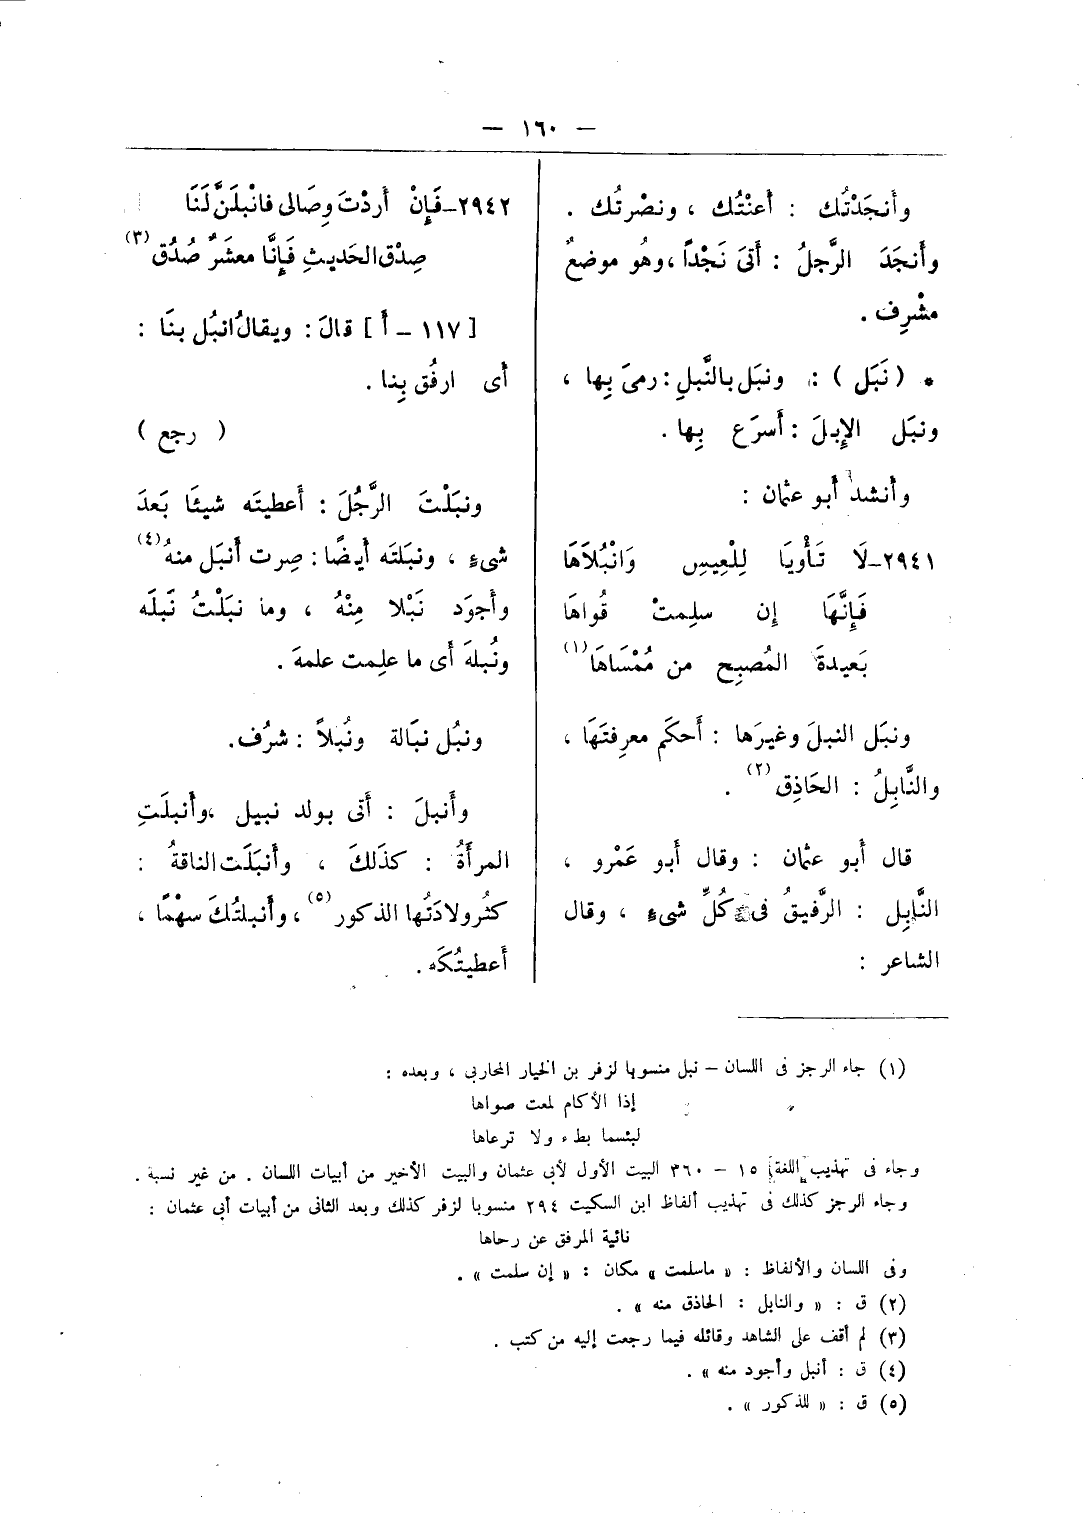 — ١٦٠ —
وأنجَدْتُك : أعنْتُك ، ونصْرتُك .
وأنجَدَ الرَّجلُ : أتىَ نَجْداً ،وهُو موضعٌ
مشْرِف .
* ( نَبَل ) : ونبَل بالنَّبلِ : رمىَ بِها ،
ونبَل الإِبلَ : أسرَع بِها .
وأنشد أبو عثمان :
٢٩٤١ــ لَا تَأْوِيَا لِلْعِيسِ وَانْبُلَاهَا
فَإِنَّهَا إِن سلِمتْ قُواهَا
بَعيدةَ المُصبِح من مُمْسَاهَا (١)
ونبَل النبلَ وغيرَها : أحكَم معرفتَهَا ،
والنَّابِلُ : الحَاذِق (٢) .
قال أبو عثمان : وقال أبو عَمْرو ،
النَّابِل : الرَّفيقُ فى كُلِّ شىءٍ ، وقال
الشاعر :
٢٩٤٢ــ فَإِنْ أردْتَ وِصَالى فانْبلَنَّ لَنَا
صِدْق الحَديثِ فَإِنَّا معشَرٌ صُدُق (٣)
[ ١١٧ ــ أ ] قالَ : ويقالُ انبُل بنَا :
أى ارفُق بِنا .
( رجع )
ونبَلْتَ الرَّجُلَ : أعطيتَه شيئَا بَعدَ
شىءٍ ، ونبَلته أيضًا : صِرت أنبَل منهُ (٤)
وأجوَد نَبْلا مِنْهُ ، وما نبَلْتُ نَبَله
ونُبلهَ أى ما علِمت علمهَ .
ونبُل نبَالة ونُبلاً : شرُف.
وأنبلَ : أتى بولد نبيل ،وأنبلَتِ
المرأةُ : كذَلكَ ، وأنبَلَت الناقةُ :
كثُر ولادَتُها الذكور (٥) ، وأنبلتُكَ سهْمًا ،
أعطيتُكَه .
(١) جاء الرجز فى اللسان — نبل منسوبا لزفر بن الخيار المحاربى ، وبعده :
إذا الأكام لمعت صواها
لبئسما بطء ولا ترعاها
وجاء فى تهذيب اللغة ١٥ — ٣٦٠ البيت الأول لأبى عثمان والبيت الأخير من أبيات اللسان . من غير نسبة .
وجاء الرجز كذلك فى تهذيب ألفاظ ابن السكيت ٢٩٤ منسوبا لزفر كذلك وبعد الثانى من أبيات أبى عثمان :
نائية المرفق عن رحاها
وفى اللسان والألفاظ : « ماسلمت » مكان : « إن سلمت » .
(٢) ق : « والنابل : الحاذق منه » .
(٣) لم أقف على الشاهد وقائله فيما رجعت إليه من كتب .
(٤) ق : أنبل وأجود منه » .
(٥) ق : « للذكور » .